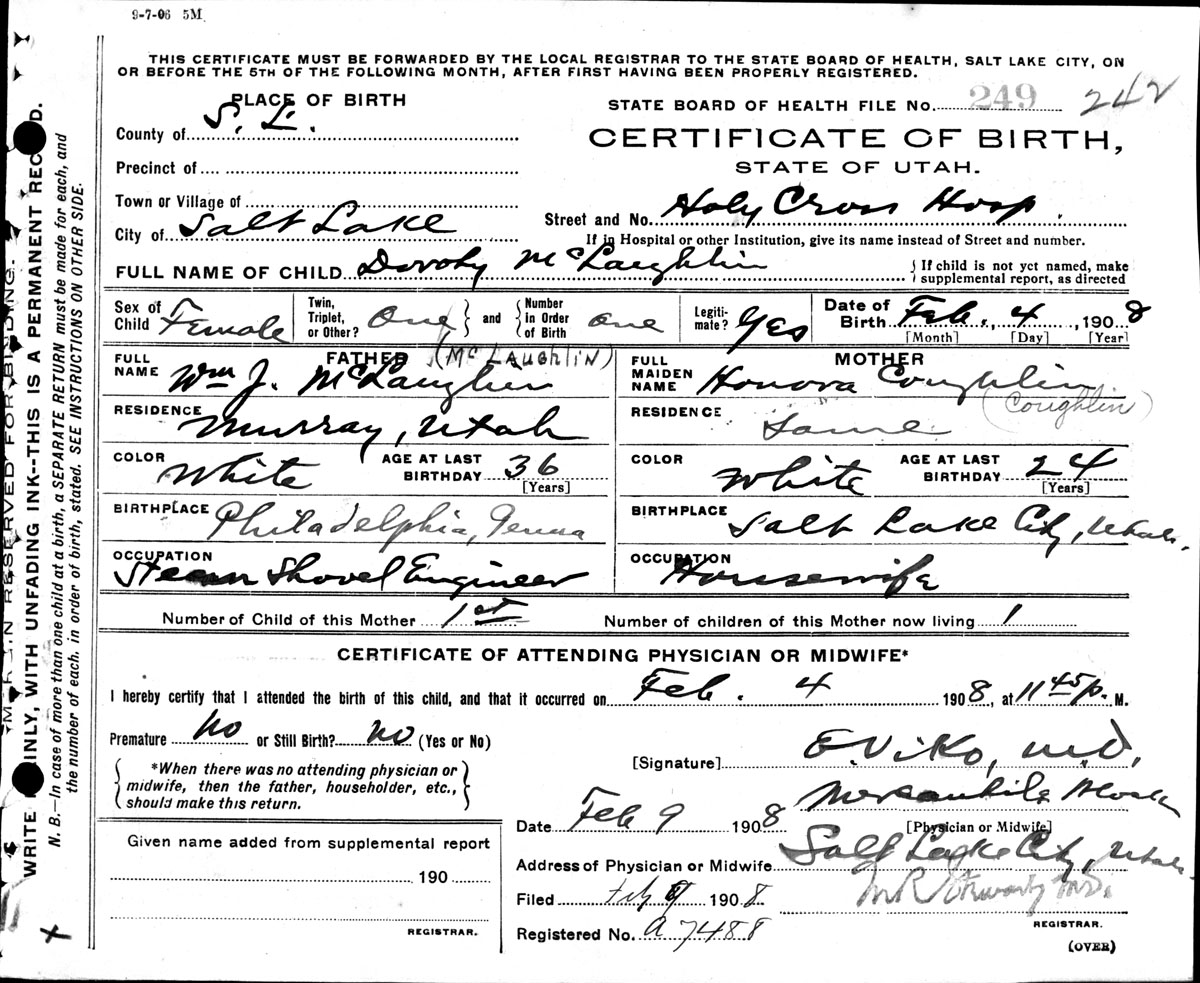 9-7-06 5M
THIS CERTIFICATE MUST BE FORWARDED BY THE LOCAL REGISTRAR TO THE STATE BOARD OF HEALTH, SALT LAKE CITY, ON
OR BEFORE THE 5TH OF THE FOLLOWING MONTH, AFTER FIRST HAVING BEEN PROPERLY REGISTERED.
PLACE OF BIRTH
STATE BOARD OF HEALTH FILE No. 249 242
County of S. L.
CERTIFICATE OF BIRTH,
STATE OF UTAH.
Precinct of
Town or Village of
City of Salt Lake
Street and No. Holy Cross Hosp.
If in Hospital or other Institution, give its name instead of Street and number.
FULL NAME OF CHILD Doroty McLaughlin
If child is not yet named, make
supplemental report, as directed
Sex of Child Female
Twin, Triplet, or Other? One and Number in Order of Birth one
Legiti-mate? Yes
Date of Birth Feb., 4, 1908
[Month] [Day] [Year]
FATHER (McLAUGHLIN)
FULL NAME Wm J. McLaughlin
RESIDENCE Murray, Utah
COLOR White AGE AT LAST BIRTHDAY 36
[Years]
BIRTHPLACE Philadelphia, Penna
OCCUPATION Steam Shovel Engineer
MOTHER
FULL MAIDEN NAME Honora Coughlin
(Coughlin)
RESIDENCE Same
COLOR White AGE AT LAST BIRTHDAY 24
[Years]
BIRTHPLACE Salt Lake City, Utah.
OCCUPATION Housewife
Number of Child of this Mother 1st Number of children of this Mother now living 1
CERTIFICATE OF ATTENDING PHYSICIAN OR MIDWIFE*
I hereby certify that I attended the birth of this child, and that it occurred on Feb. 4 1908, at 11 45 p. M.
Premature No or Still Birth? No (Yes or No)
*When there was no attending physician or
midwife, then the father, householder, etc.,
should make this return.
[Signature] E. Viko, M.D.
Mercantile Block
[Physician or Midwife]
Date Feb 9 1908
Address of Physician or Midwife Salt Lake City, Utah.
Filed Feb 9 1908.
M.D.
REGISTRAR.
Registered No. a 7488
(OVER)
Given name added from supplemental report
190
REGISTRAR.
RESERVED FOR BINDING.
WRITE INLY, WITH UNFADING INK--THIS IS A PERMANENT REC D.
N. B.--In case of more than one child at a birth, a SEPARATE RETURN must be made for each, and
the number of each, in order of birth, stated. SEE INSTRUCTIONS ON OTHER SIDE.